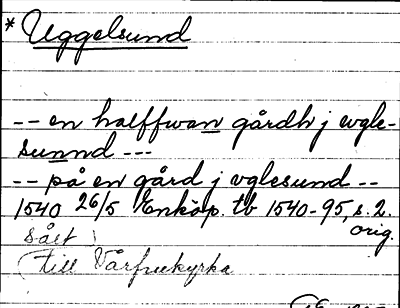 * Uggelsund
-- en halffwan gårdh j wgle-
sunnd ---
-- på en gård j vglesund --
1540 26/5 Enköp. tb 1540-95, s. 2.
orig.
sålt
till Vårfrukyrka